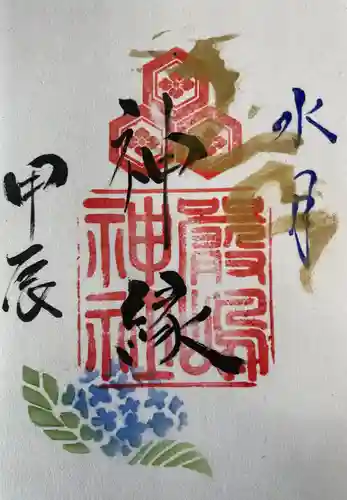 水月
神縁
甲辰
厳嶋
神社